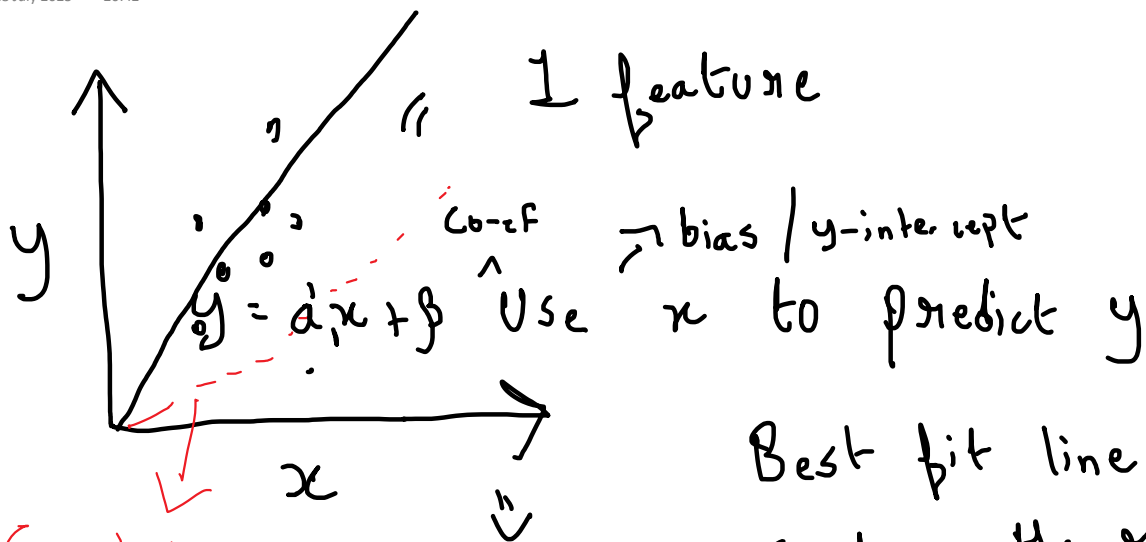 1 feature
y
co-ef
bias / y-intercept
y = α₁x + β
Use x to predict y
x
Best fit line